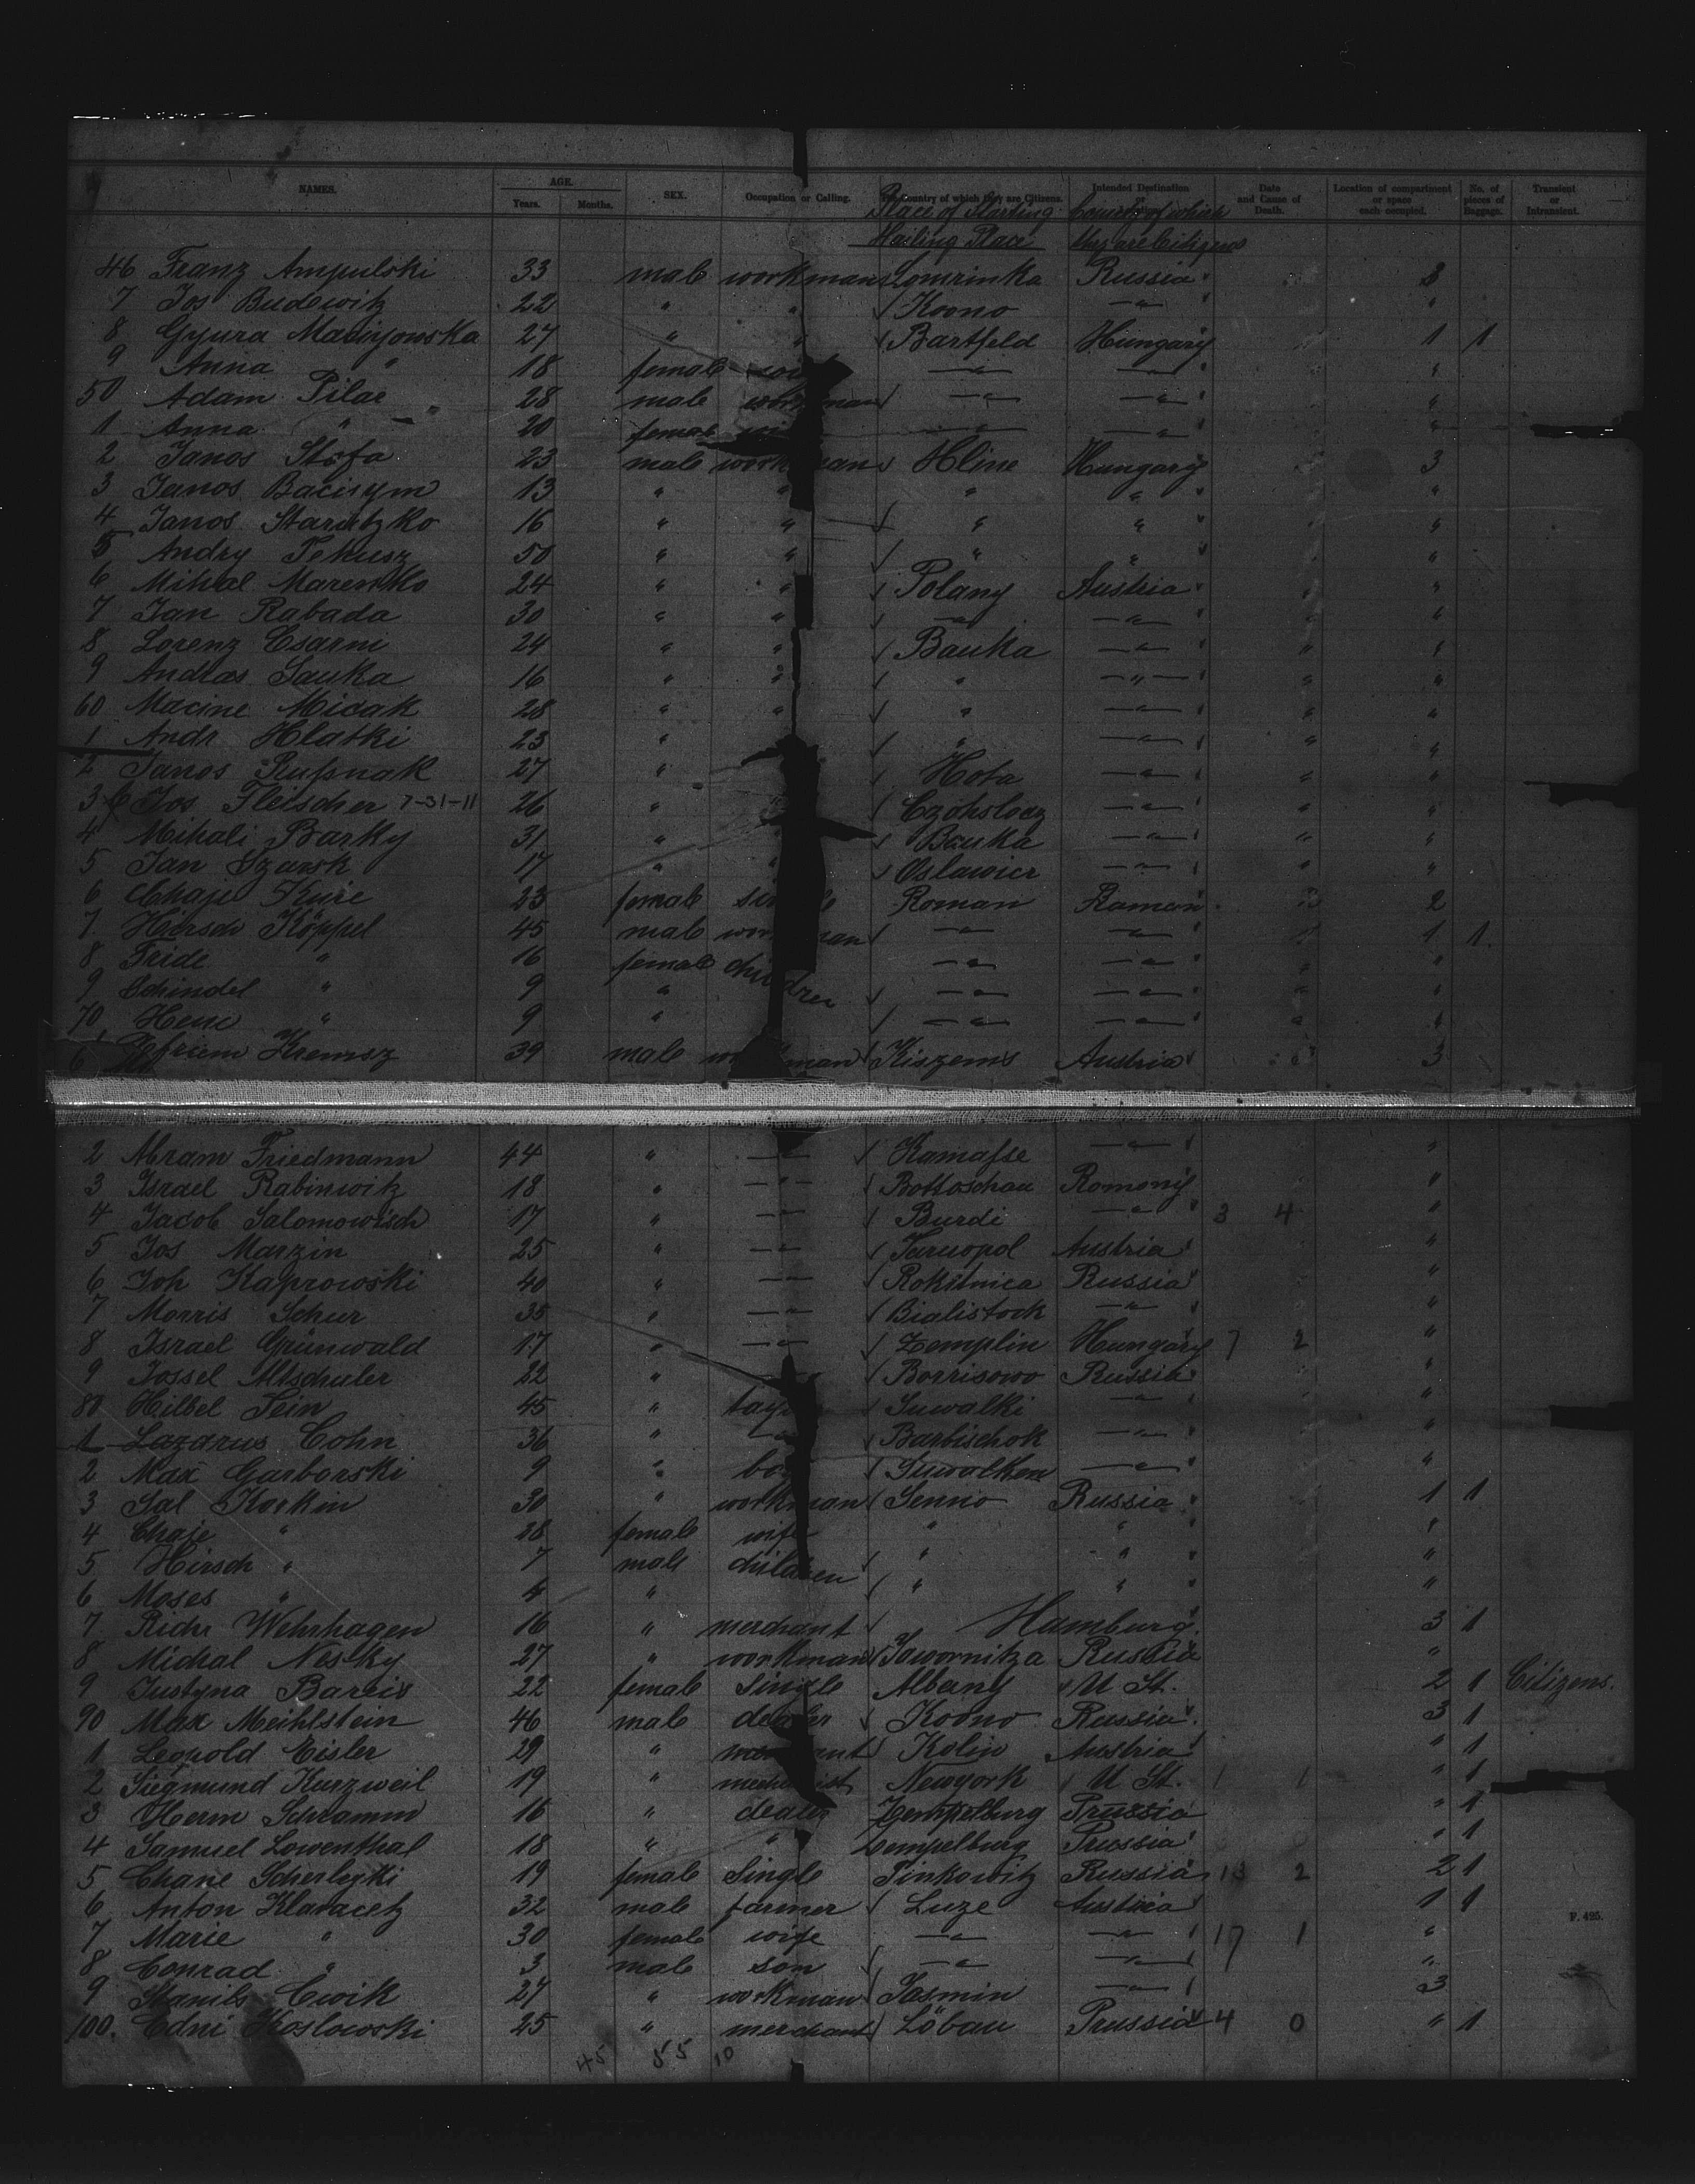 NAMES. AGE. SEX. Occupation or Calling. The Country of which they are Citizens. Intended Destination or Date and Cause of Death. Location of compartment or space each occupied. No. of pieces of Baggage. Transient or Intransient.
Years. Months. Place of Starting Country of which
Hailing Place they are Citizens
46 Franz Ampulski 33 male workman Lomrinka Russia 3
7 Jos Budewitz 22 " " Kovno —"— "
8 Gyura Maciyowska 27 " " Bartfeld Hungary 1 1
9 Anna " 18 female —"— —"— "
50 Adam Pilar 28 male workman —"— —"— "
1 Anna " 20 female —"— —"— "
2 Janos Stofa 23 male workman Hline Hungary 3
3 Janos Bacisym 13 " " " " "
4 Janos Starutzko 16 " " " " "
5 Andry Tekusz 50 " " " " "
6 Mihal Marentko 24 " " Polany Austria "
7 Jan Rabada 30 " " —"— —"— "
8 Lorenz Csarni 24 " " Bauka —"— "
9 Andras Sauka 16 " " " —"— "
60 Macine Micak 28 " " " —"— "
1 Andr Hlatki 23 " " —"— "
2 Janos Russnak 27 " Hota —"— "
3 Jos Fleischer 7-31-11 26 " Czohslocz —"— "
4 Mihali Barky 31 " Bauka —"— "
5 Jan Szarsk 17 " " Oslawicr —"— "
6 Chaje Kure 23 female single Roman Raman 2
7 Hirsch Köppel 45 male workman —"— —"— 1 1
8 Fride " 16 female children —"— —"— "
9 Schindel " 9 " —"— —"— "
70 Heni " 9 " —"— —"— "
1 Kremsz 39 male workman Kiszems Austria 3
2 Abram Friedmann 44 " —"— Kamasse —"— "
3 Israel Rabinwitz 18 " —"— Bottoschau Romony "
4 Jacob Salomowisch 17 " —"— Burdi —"— 3 4 "
5 Jos Marzin 25 " —"— Tarnopol Austria "
6 Joh Kaprowski 40 " —"— Rokitnica Russia "
7 Morris Schur 35 " —"— Bialistock —"— "
8 Israel Grünwald 17 " —"— Zemplin Hungary 7 2 "
9 Jossel Altschuler 22 " Borrisowo Russia "
80 Hilbel Fein 45 " Suwalki —"— "
1 Lazarus Cohn 36 " —"— Barbischok —"— "
2 Max Garborski 9 " boy Suwalken —"— "
3 Sal Korkin 30 " workman Senno Russia 1 1
4 Chaje " 28 female wife " " "
5 Hirsch " 7 male children " " "
6 Moses " 4 " " " "
7 Richr Wehrhagen 16 " merchant Hamburg. 3 1
8 Michal Nesky 27 " workman Jawornitza Russia "
9 Justyna Bareis 22 female Single Albany U St. 2 1 Citizens.
90 Max Meihlstein 46 male dealer Kovno Russia 3 1
1 Leopold Eisler 29 " merchant Kolin Austria " 1
2 Siegmund Kurzweil 19 " Newyork U St. 1 1 " 1
3 Herm Schramm 16 " dealer Zempelburg Prussia " 1
4 Samuel Lowenthal 18 " " Zempelburg Prussia " 1
5 Chane Scherletzki 19 female Single Pinkowitz Russia 13 2 2 1
6 Anton Klavacetz 32 male farmer Luze Austria 1 1
7 Marie " 30 female wife —"— —"— 17 1 "
8 Conrad " 3 male son —"— —"— "
9 Stanils Cwik 27 " workman Jasmin —"— 3
100. Edni Koslowski 25 " merchant Löbau Prussia 4 0 " 1
45 55 10
F. 425.